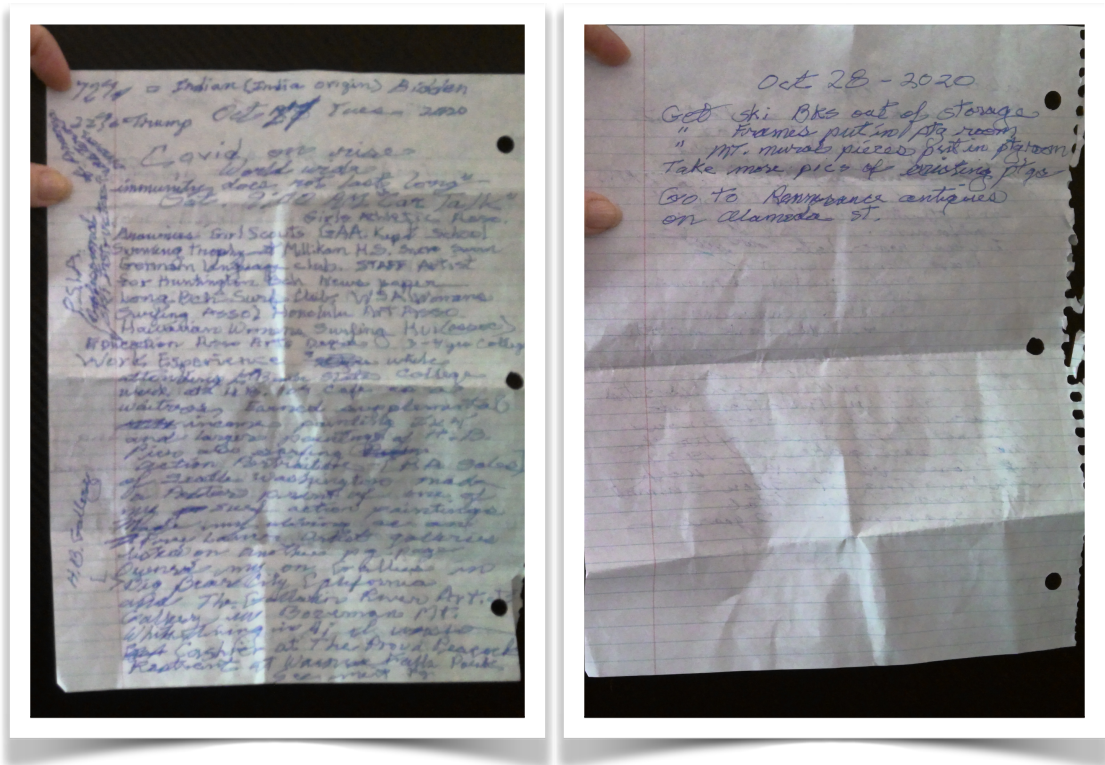 72% = Indian (India origin) Bidden
Oct 27 Tues - 2020
22% Trump
Covid on rise
World wide
immunity does not last long"
Sat. 9:00 AM Car Talk"
Girls Athletic
Brownies Girl Scouts GAA. School
Trophy Millikan H.S. Swim
German Language Club. STAFF Artist
For Huntington Bch News paper
Long Bch Surf Club, WSA Womans
Surfing Assoc Honolulu Art Asso.
Hawaiian Womens Surfing Hui (assoc)
Education Degree 3-4 yrs College
Work Experience while
attending State College
work at H.B. Cafe as a
waitress, Earned supplemental
income painting
and larger paintings of H.B.
Pier also surfing
action H.A. Sales
of Seattle Washington made
a Poster print of one of
my surf action paintings
Made my living as an
artist galleries
listed on another pg page
Owned my on Galleries in
Big Bear City California
and The Gallatin River Artist
Gallery in Bozeman Mt.
While living in
Cashier at The Proud Peacock
Restrent at Park.
see next pg.
P.S.I.A.
Professional
H.B. Gallery
Oct 28 - 2020
Get ski Bks out of storage
" Frames put in ptg room
" mt. mural pieces put in ptg room
Take more pics of existing ptgs
Go to antiques
on Alameda St.